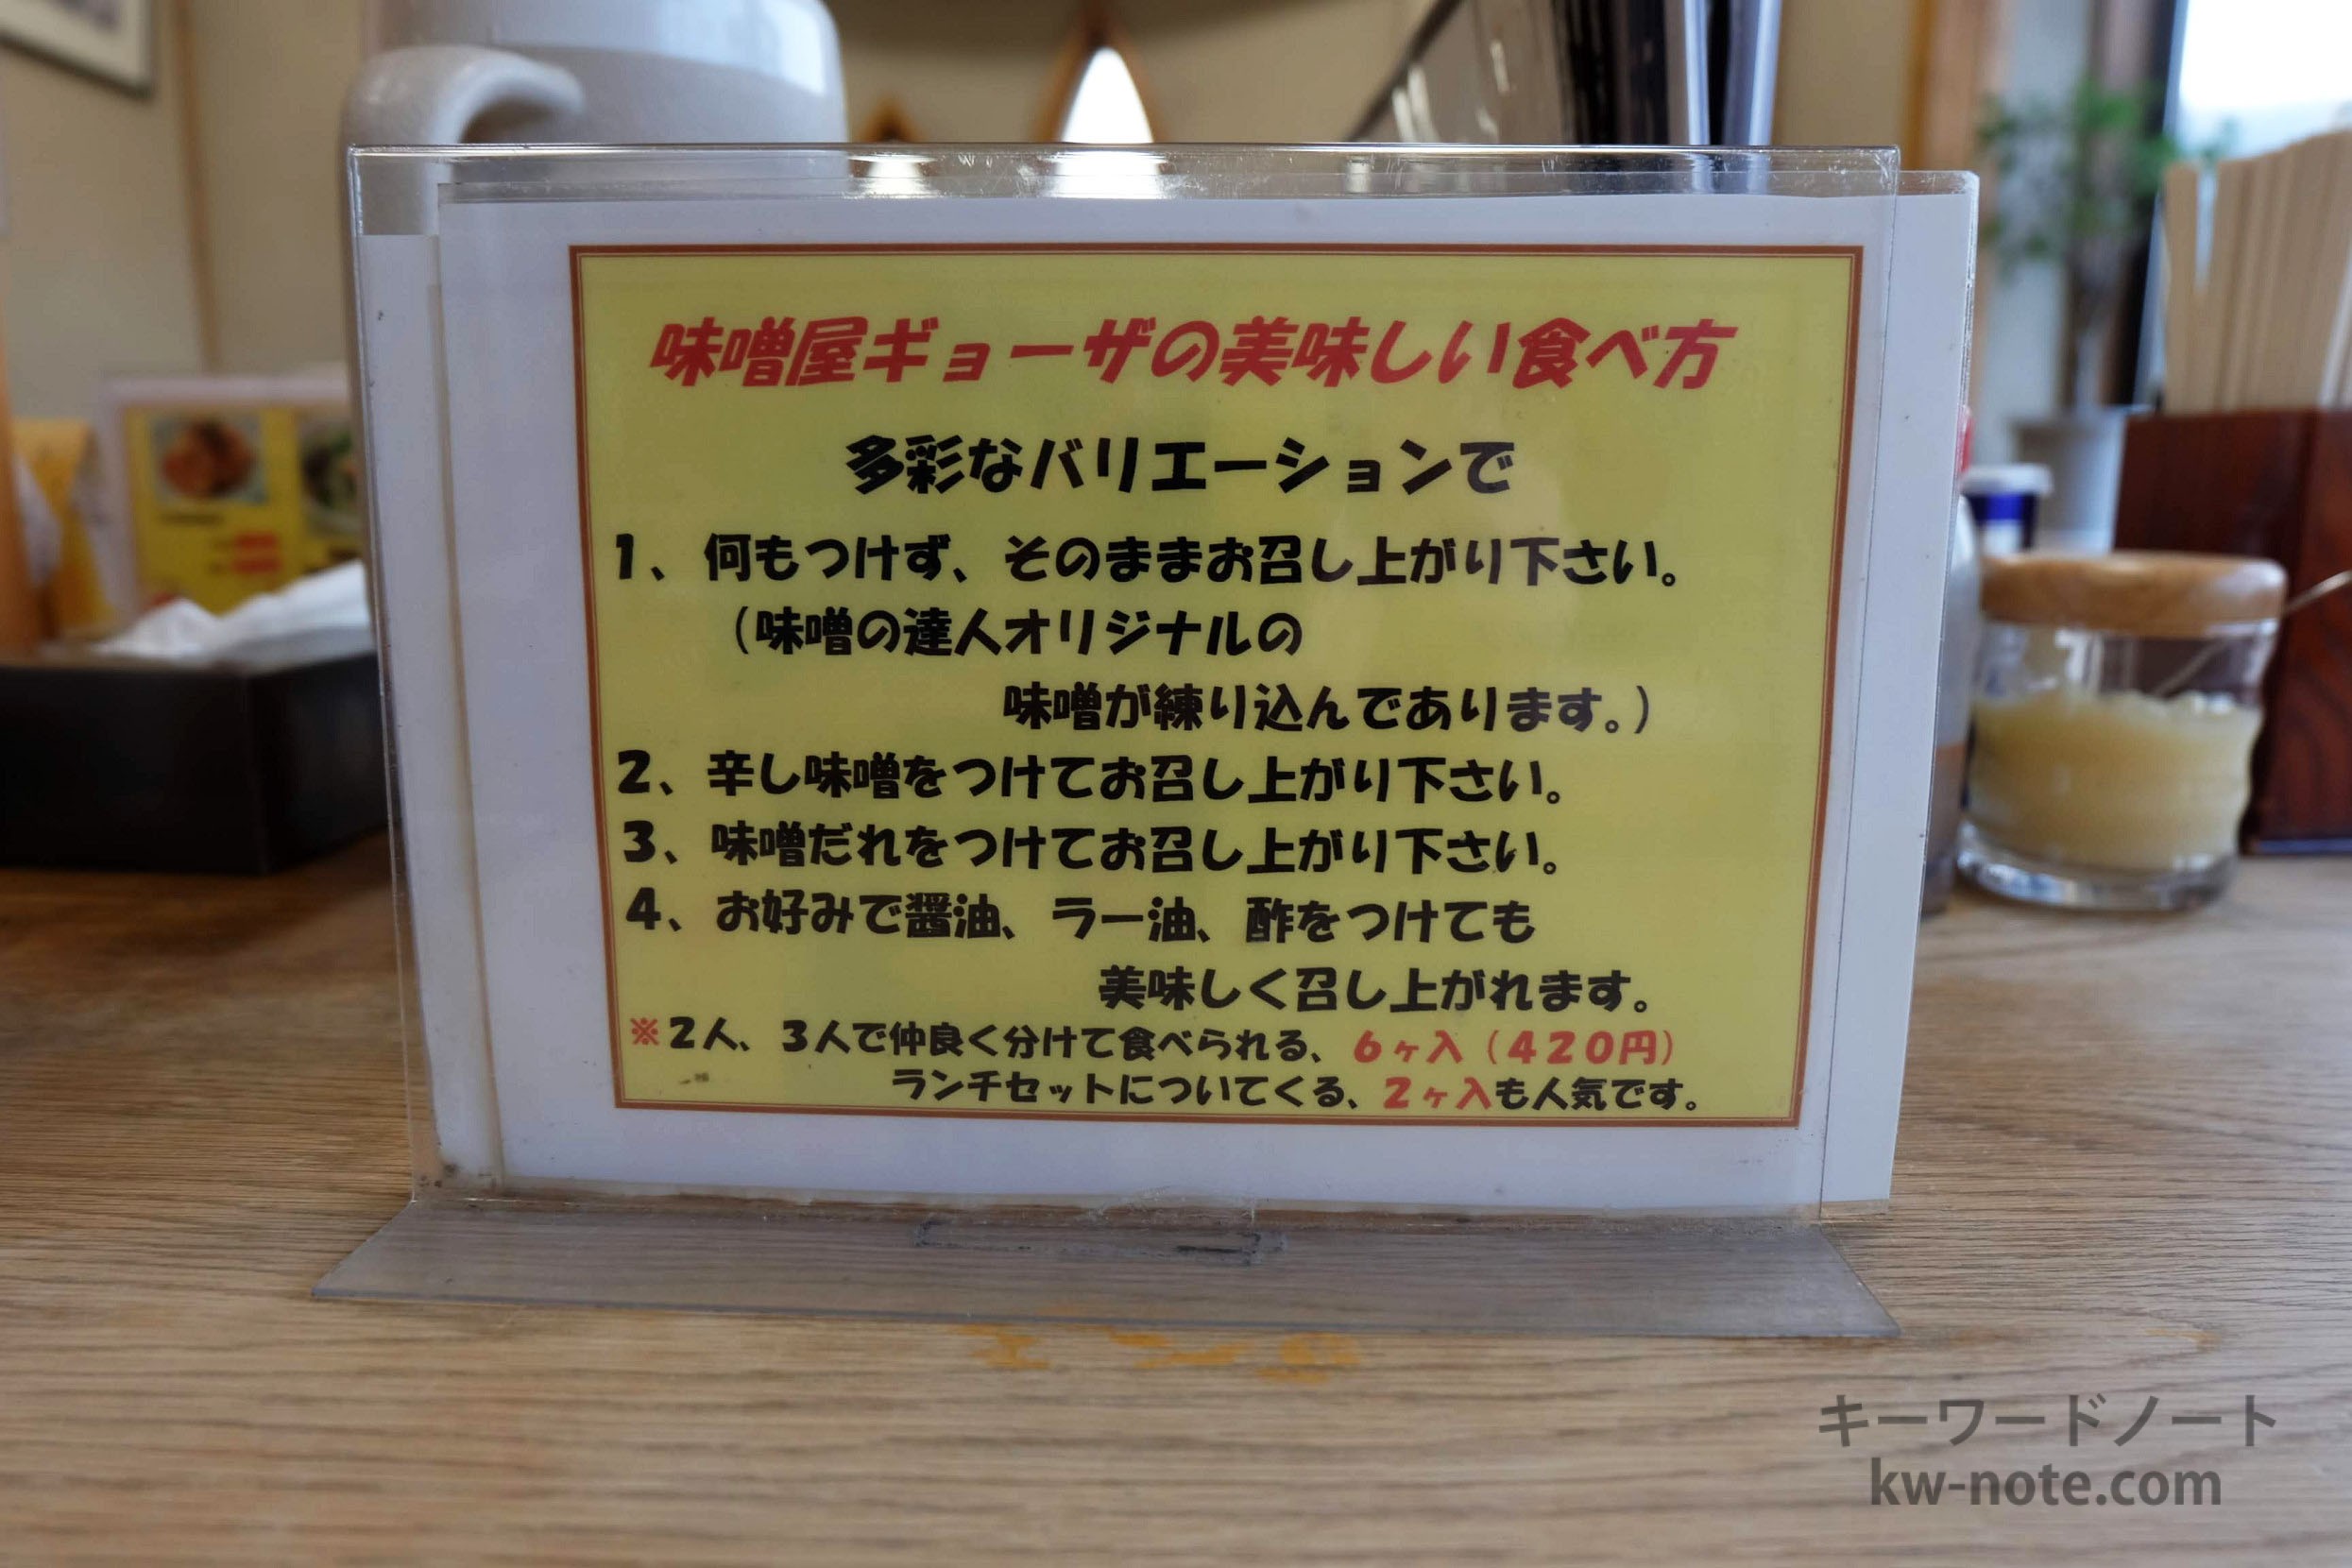 味噌屋ギョーザの美味しい食べ方
多彩なバリエーションで
1、何もつけず、そのままお召し上がり下さい。
（味噌の達人オリジナルの
味噌が練り込んであります。）
2、辛し味噌をつけてお召し上がり下さい。
3、味噌だれをつけてお召し上がり下さい。
4、お好みで醤油、ラー油、酢をつけても
美味しく召し上がれます。
※２人、３人で仲良く分けて食べられる、６ヶ入（４２０円）
ランチセットについてくる、２ヶ入も人気です。
キーワードノート
kw-note.com